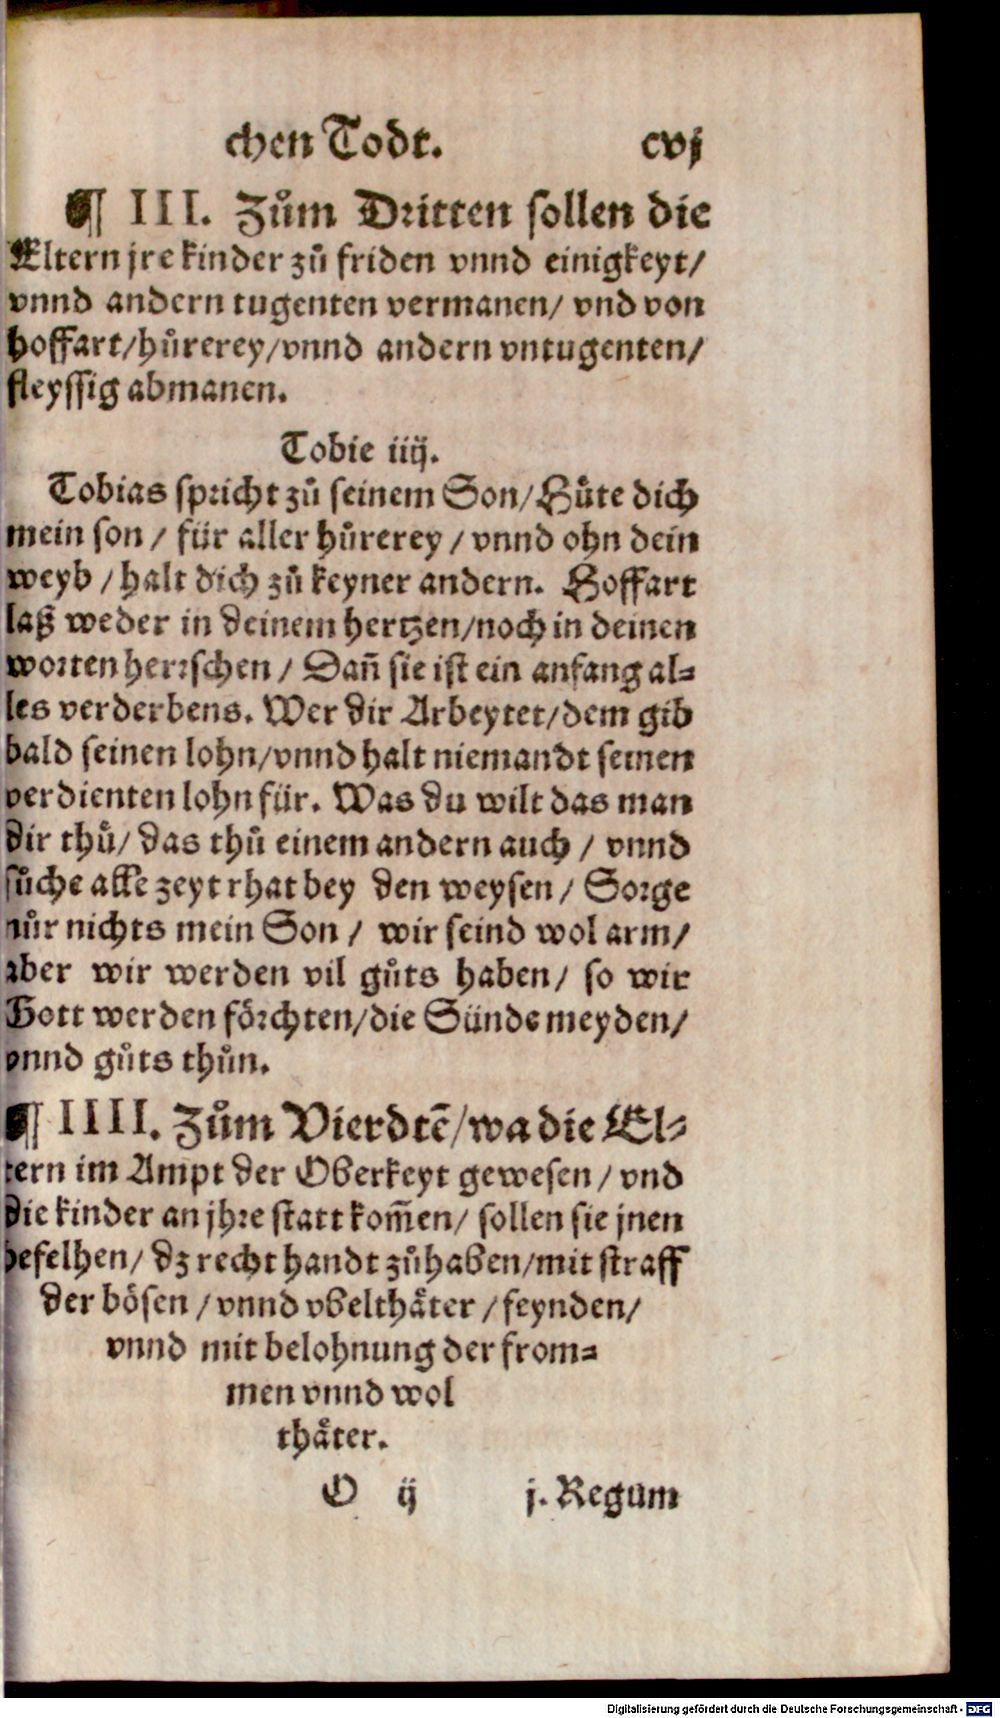 chen Todt. cvj
¶ III. Zuͦm Dritten sollen die
Eltern jre kinder zuͦ friden vnnd einigkeyt/
vnnd andern tugenten vermanen/ vnd von
hoffart/huͦrerey/vnnd andern vntugenten/
fleyssig abmanen.
Tobie iiij.
Tobias spricht zuͦ seinem Son/Huͤte dich
mein son / für aller huͦrerey / vnnd ohn dein
weyb / halt dich zuͦ keyner andern. Hoffart
laß weder in deinem hertzen/noch in deinen
worten herrschen / Dañ sie ist ein anfang al⸗
les verderbens. Wer dir Arbeytet/dem gib
bald seinen lohn/vnnd halt niemandt seinen
verdienten lohn für. Was du wilt das man
dir thuͤ/ das thuͦ einem andern auch / vnnd
suͦche alle zeyt rhat bey den weysen / Sorge
nuͦr nichts mein Son / wir seind wol arm/
aber wir werden vil guͦts haben/ so wir
Gott werden foͤrchten/die Sünde meyden/
vnnd guͦts thuͦn.
¶ IIII. Zuͦm Vierdtē/wa die El⸗
tern im Ampt der Oberkeyt gewesen / vnd
die kinder an jhre statt kom̄en/ sollen sie jnen
befelhen/ dz recht handt zuͦhaben/mit straff
der boͤsen / vnnd vbelthaͤter / feynden/
vnnd mit belohnung der from⸗
men vnnd wol
thaͤter.
O ij j. Regum
Digitalisierung gefördert durch die Deutsche Forschungsgemeinschaft - DFG